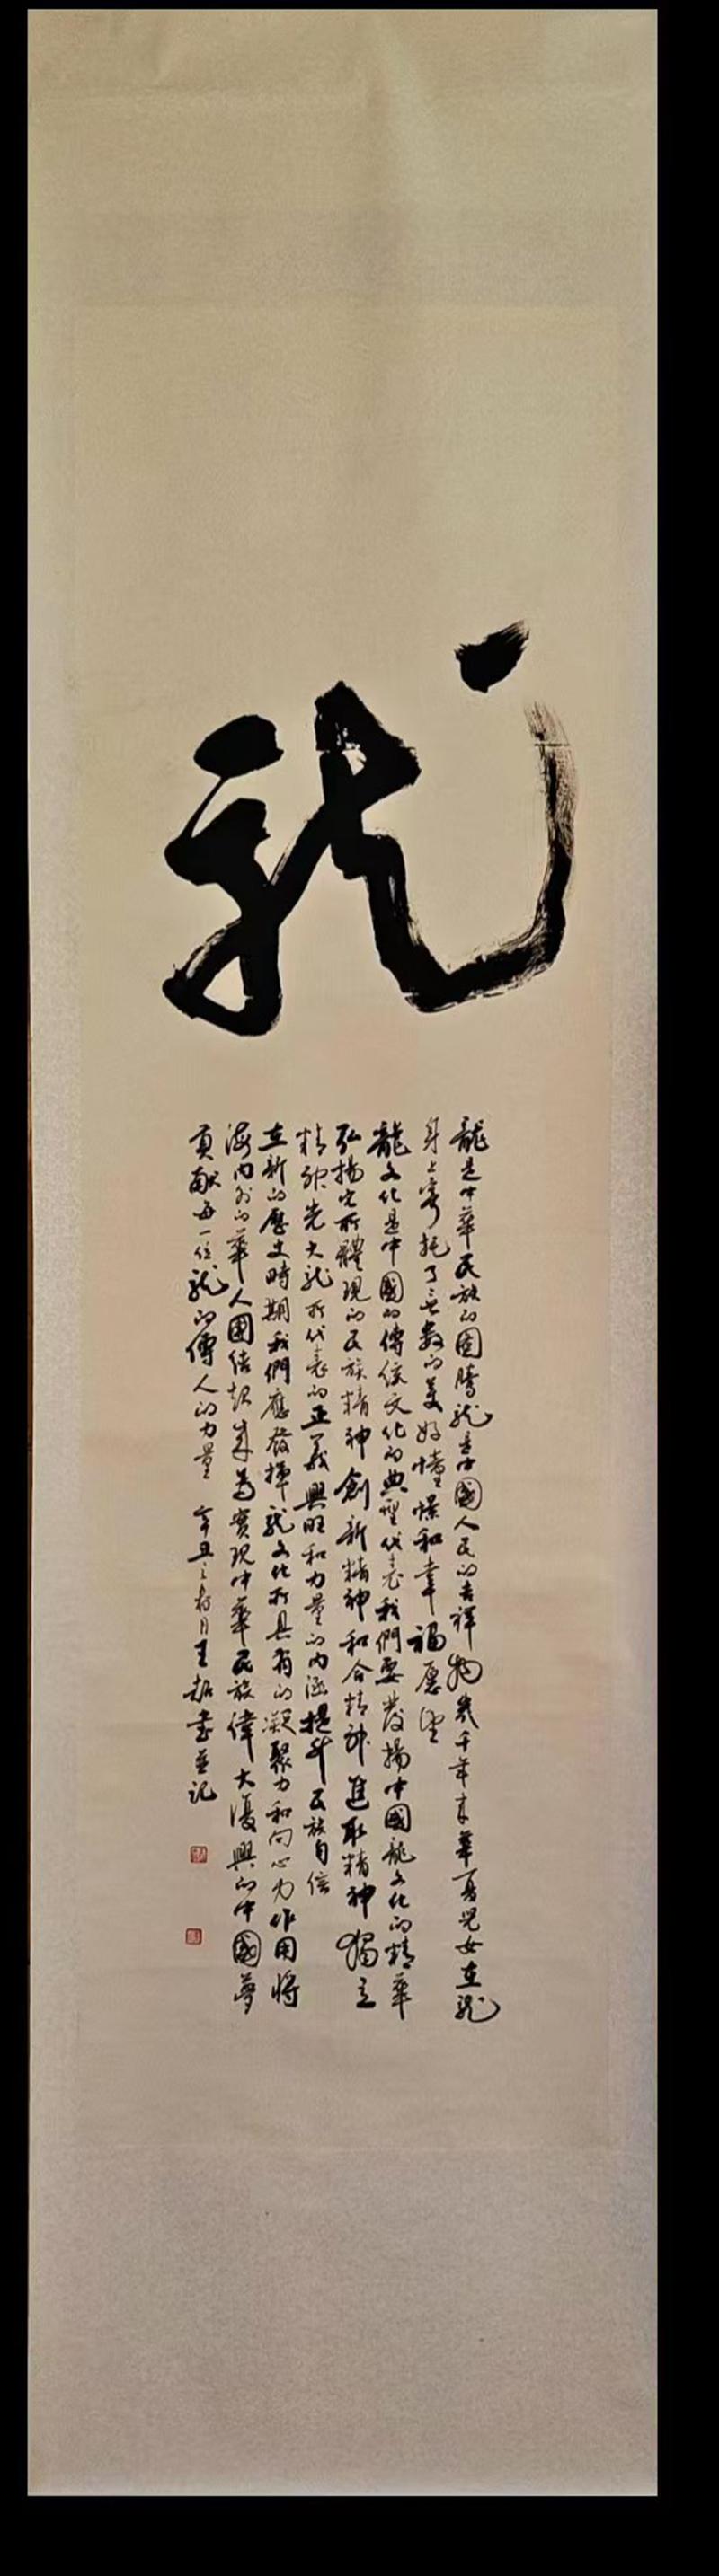 龙
龍是中華民族的图騰龙是中國人民的吉祥物几千年来華夏兒女在龙
身上寄托了无数的美好憧憬和幸福愿望
龍文化是中國的傳统文化的典型代表我們要發揚中國龙文化的精華
弘揚它所體現的民族精神創新精神和合精神進取精神獨立
精神光大龙所代表的正義興旺和力量的内涵提升民族自信
在新的歷史時期我們應發揮龙文化所具有的凝聚力和向心力作用將
海内外的華人團结起来為實現中華民族偉大復興的中國夢
貢献每一位龙的傳人的力量 辛丑之春月王 書並記